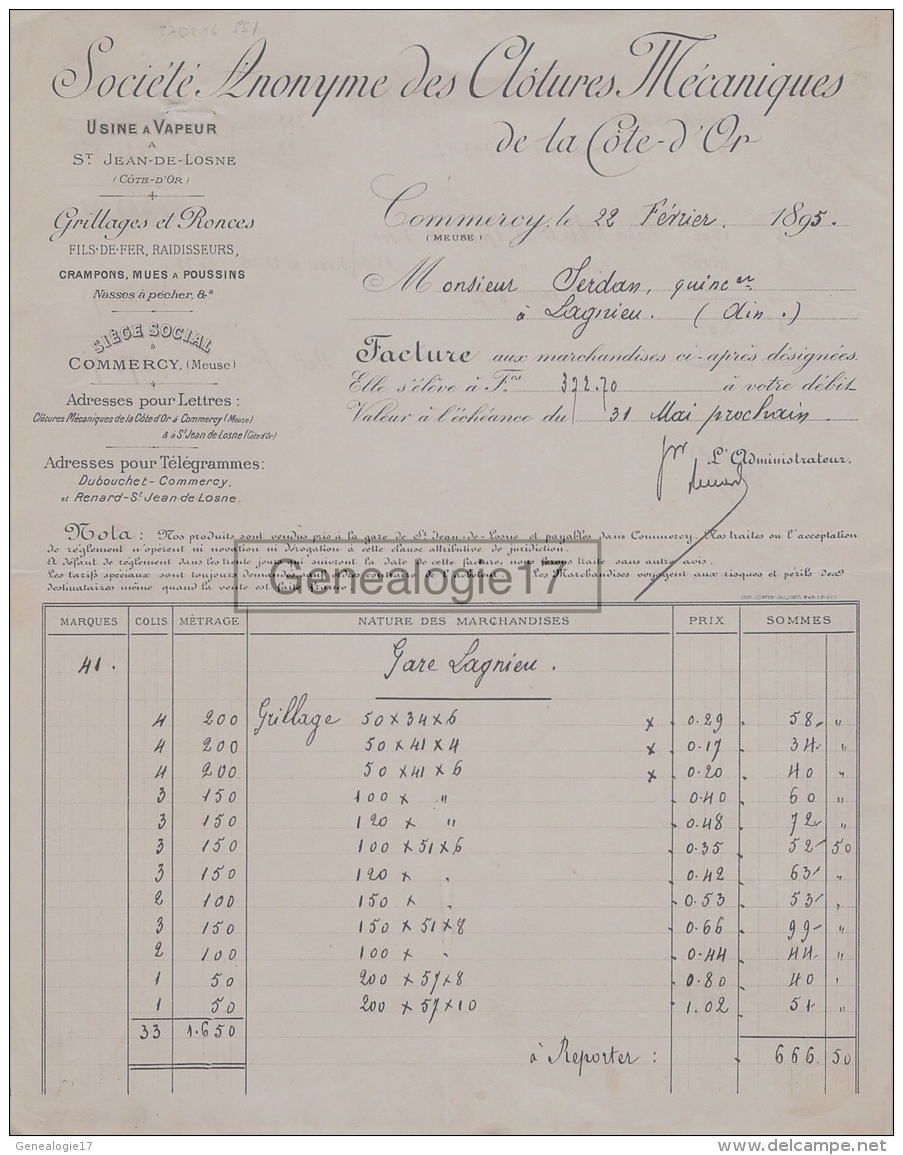 Société Anonyme des Clôtures Mécaniques
de la Côte-d'Or
USINE A VAPEUR
A
ST JEAN-DE-LOSNE
(CÔTE-D'OR)
Grillages et Ronces
FILS-DE-FER, RAIDISSEURS,
CRAMPONS, MUES A POUSSINS
Nasses à pêcher, &a
SIÈGE SOCIAL
à
COMMERCY, (Meuse)
Adresses pour Lettres :
Clôtures Mécaniques de la Côte d'Or à Commercy (Meuse)
& à St Jean de Losne (Côte d'Or)
Adresses pour Télégrammes:
Dubouchet-Commercy,
et Renard-St Jean-de-Losne.
Commercy, le 22 Février. 1895.
(MEUSE)
Monsieur Serdan, quincer
à Lagnieu. (Ain.)
Facture aux marchandises ci-après désignées.
Elle s'élève à Frs 372.70 à votre débit
Valeur à l'échéance du 31 Mai prochain.
L'Administrateur.
Nota : Nos produits sont vendus pris à la gare de St Jean-de-Losne et payables dans Commercy. Nos traites ou l'acceptation
de règlement n'opèrent ni novation ni dérogation à cette clause attributive de juridiction.
A défaut de règlement dans les trente jours qui suivront la date de cette facture, nous ferons traite sans autre avis.
Les tarifs spéciaux sont toujours demandés sauf ordres contraire de l'acheteur. Les Marchandises voyagent aux risques et périls des
destinataires même quand la vente est faite franco.
Genealogie17
MARQUES COLIS MÉTRAGE NATURE DES MARCHANDISES PRIX SOMMES
41. Gare Lagnieu.
4 200 Grillage 50 x 34 x 6 x 0.29 58 "
4 200 50 x 41 x 4 x 0.17 34 "
4 200 50 x 41 x 6 x 0.20 40 "
3 150 100 x " 0.40 60 "
3 150 120 x " 0.48 72 "
3 150 100 x 51 x 6 0.35 52 50
3 150 120 x . 0.42 63 "
2 100 150 x . 0.53 53 "
3 150 150 x 51 x 8 0.66 99 "
2 100 100 x . 0.44 44 "
1 50 200 x 57 x 8 0.80 40 "
1 50 200 x 57 x 10 1.02 51 "
33 1.650
à Reporter : 666 50
Genealogie17
www.delcampe.net